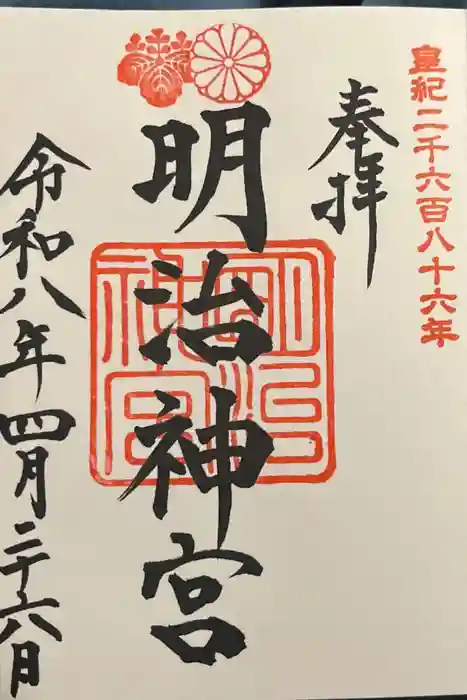 皇紀二千六百八十六年
奉拝
明治神宮
明治神宮
令和八年四月二十六日